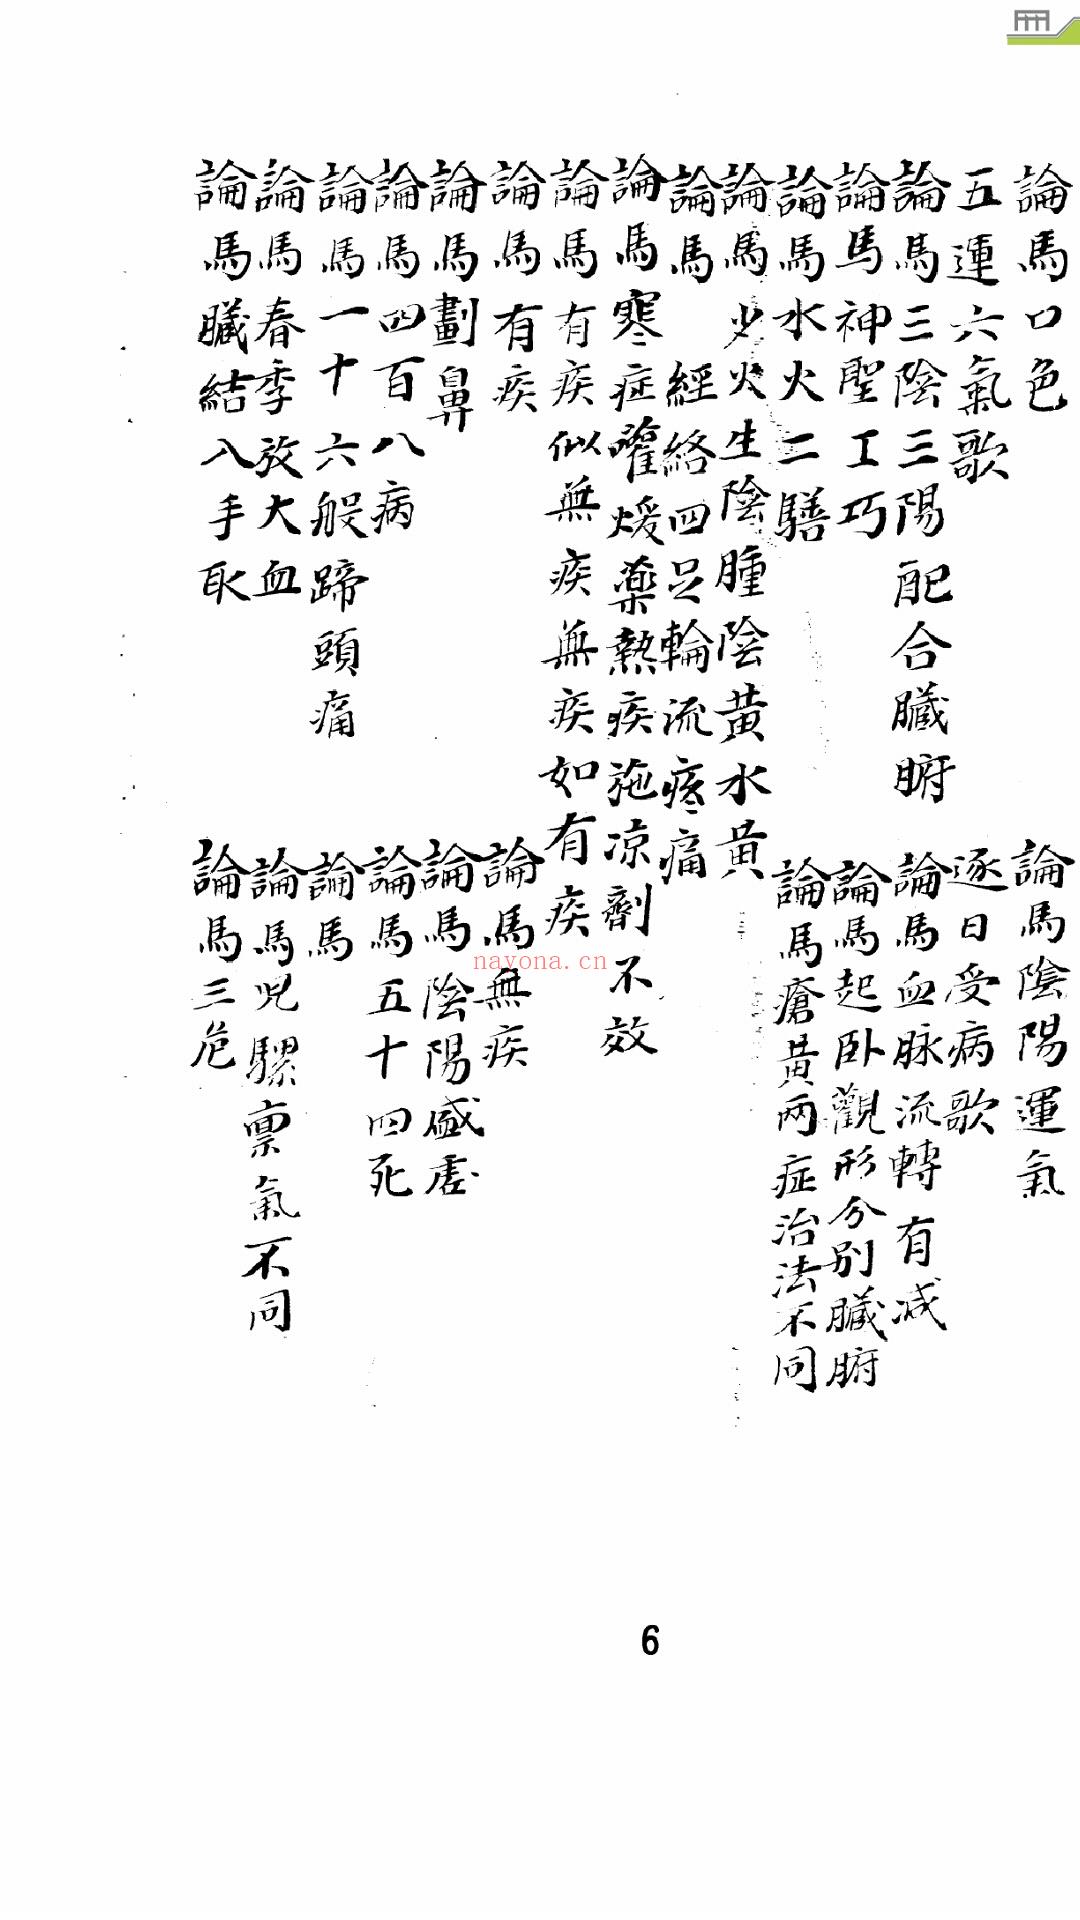 論馬口色　論馬陰陽運氣
五運六氣歌　逐日受病歌
論馬三陰三陽配合臟腑　論馬血脉流轉有减
論馬神聖工巧　論馬起卧觀形分別臟腑
論馬水火二騸　論馬瘡黃两症治法不同
論馬少火生陰腫陰黃水黃
論馬經絡四足輪流疼痛
論馬寒症灌煖藥熱疾施凉劑不效
論馬有疾似無疾無疾如有疾
論馬有疾　論馬無疾
論馬劃鼻　論馬陰陽盛虛
論馬四百八病　論馬五十四死
論馬一十六般蹄頭痛　論馬
論馬春季放大血　論馬児騾禀氣不同
論馬臟結入手取　論馬三危
nayona.cn
6